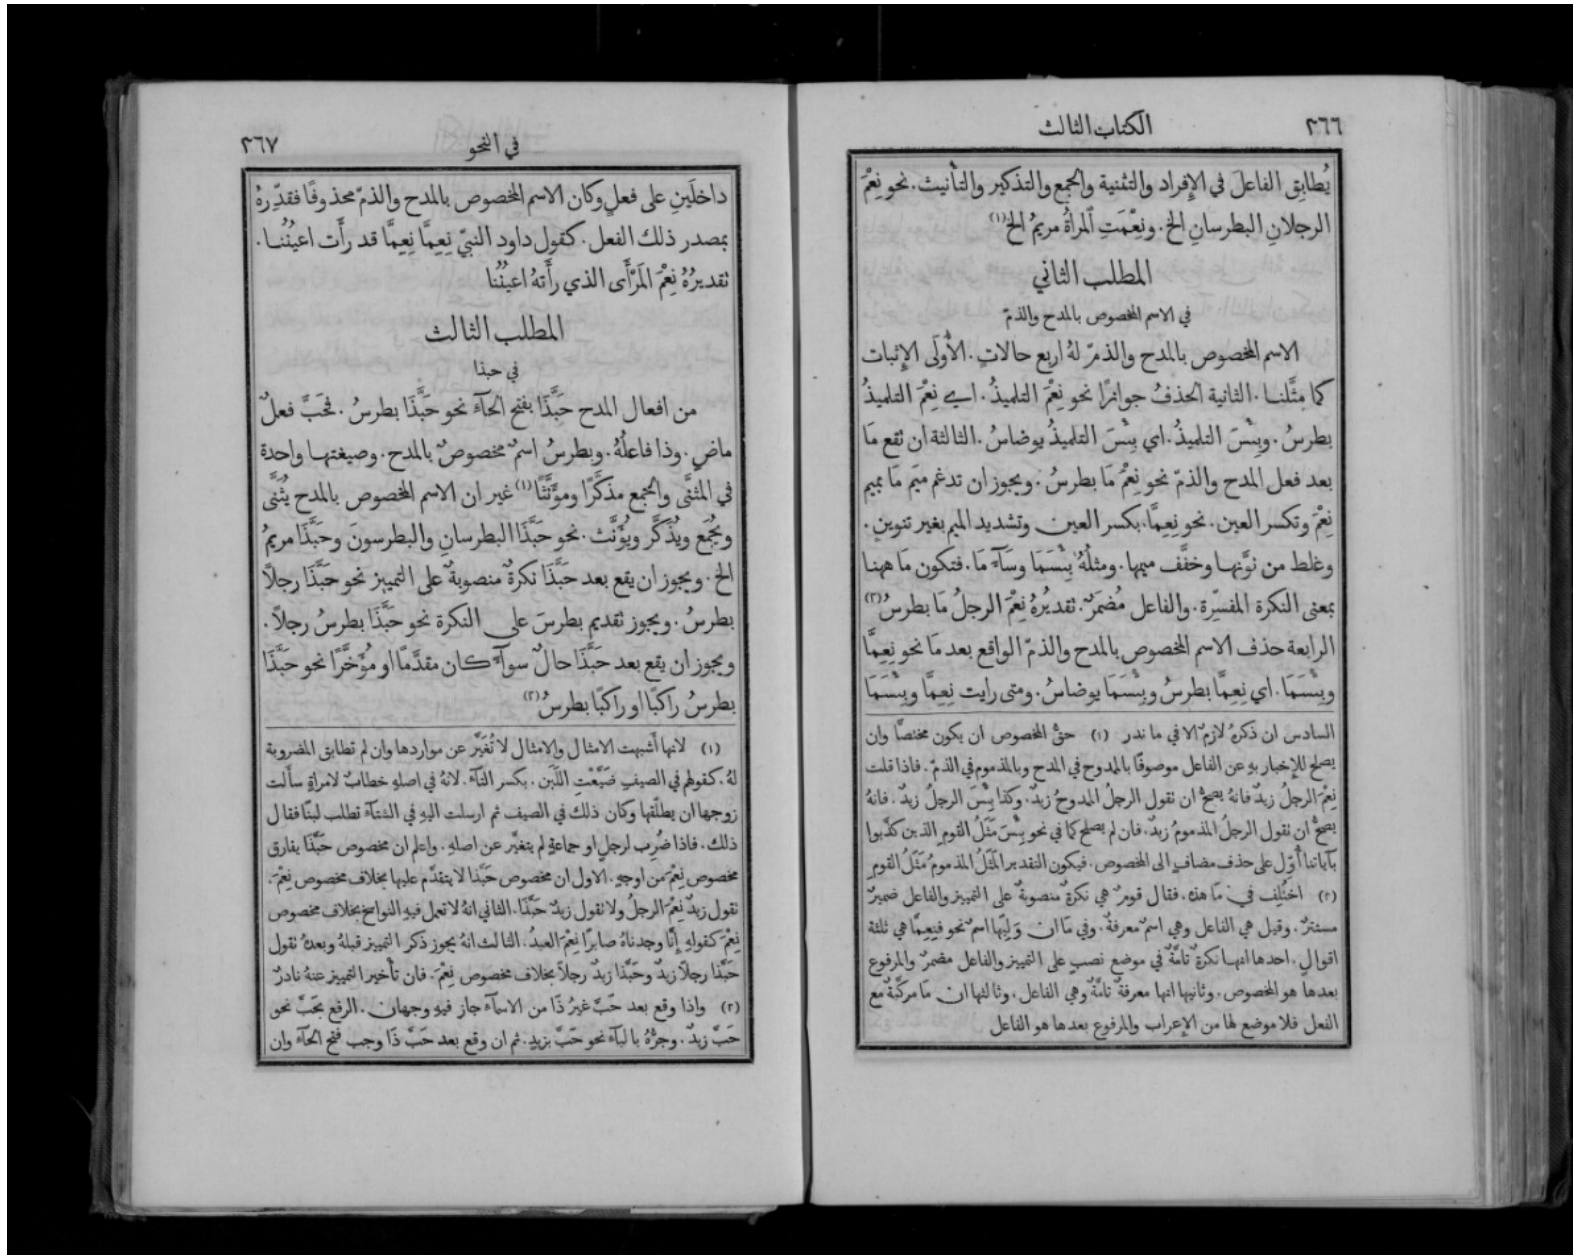 ٢٦٦
الكتاب الثالث
يُطابِق الفاعلَ في الإفراد والتثنية والجمع والتذكير والتأنيث. نحو نِعْمَ
الرجلانِ البطرسانِ الخ. ونِعْمَتِ ٱلمرأَةُ مريمُ الخ (١)
المطلب الثاني
في الاسم المخصوص بالمدح والذمّ
الاسم المخصوص بالمدح والذمّ لهُ اربع حالاتٍ. الأُولَى الإثبات
كما مثَّلنا. الثانية الحذفُ جوازًا نحو نِعْمَ التلميذُ. اي نِعْمَ التلميذُ
بطرسُ. وبِئْسَ التلميذُ. اي بِئْسَ التلميذُ يوضاسُ. الثالثة ان تقع مَا
بعد فعل المدح والذمّ نحو نِعْمَ مَا بطرسُ. ويجوز ان تدغم ميمَ مَا بميم
نِعْمَ وتكسر العين. نحو نِعِمَّا، بكسر العين وتشديد الميم بغير تنوينٍ.
وغلط من نوَّنها وخفَّف ميمها. ومثلُهُ بِئْسَمَا وسَآءَ مَا. فتكون مَا ههنا
بمعنى النكرة المفسِّرة. والفاعل مُضمَرٌ. تقديرُهُ نِعْمَ الرجلُ مَا بطرسُ (٢)
الرابعة حذف الاسم المخصوص بالمدح والذمّ الواقع بعد مَا نحو نِعِمَّا
وبِئْسَمَا. اي نِعِمَّا بطرسُ وبِئْسَمَا يوضاسُ. ومتى رايت نِعِمَّا وبِئْسَمَا
السادس ان ذكرهُ لازمٌ الا في ما ندر (١) حقُّ المخصوص ان يكون مختصًّا وان
يصلح للإخبار بهِ عن الفاعل موصوفًا بالممدوح في المدح وبالمذموم في الذمّ. فاذا قلت
نِعْمَ الرجلُ زيدٌ فانهُ يصحُّ ان تقول الرجلُ الممدوحُ زيدٌ. وكذا بِئْسَ الرجلُ زيدٌ. فانهُ
يصحُّ ان تقول الرجلُ المذمومُ زيدٌ. فان لم يصلح كما في نحو بِئْسَ مَثَلُ القومِ الذين كذَّبوا
بآياتنا أُوِّل على حذف مضافٍ الى المخصوص. فيكون التقدير المَثَلُ المذمومُ مَثَلُ القومِ
(٢) اختُلِف في مَا هذه. فقال قومٌ هي نكرةٌ منصوبةٌ على التمييز والفاعل ضميرٌ
مستترٌ. وقيل هي الفاعل وهي اسمٌ معرفةٌ. وفي مَا ان وَلِيَها اسمٌ نحو فنِعِمَّا هي ثلثة
اقوالٍ. احدها انها نكرةٌ تامَّةٌ في موضع نصبٍ على التمييز والفاعل مضمرٌ والمرفوع
بعدها هو المخصوص. وثانيها انها معرفةٌ تامَّةٌ وهي الفاعل. وثالثها ان مَا مركَّبةٌ مع
الفعل فلا موضع لها من الإعراب والمرفوع بعدها هو الفاعل
في النحو
٢٦٧
داخلَينِ على فعلٍ وكان الاسم المخصوص بالمدح والذمّ محذوفًا فقدِّرهُ
بمصدر ذلك الفعل. كقول داود النبيّ نِعِمَّا نِعِمَّا قد رأَت اعيُنُنا.
تقديرُهُ نِعْمَ المَرْأَى الذي رأَتهُ اعيُنُنا
المطلب الثالث
في حبذا
من افعال المدح حَبَّذَا بفتح الحآءِ نحو حَبَّذَا بطرسُ. فحَبَّ فعلٌ
ماضٍ. وذا فاعلُهُ. وبطرسُ اسمٌ مخصوصٌ بالمدح. وصيغتها واحدة
في المثنَّى والجمع مذكَّرًا ومؤنَّثًا (١) غير ان الاسم المخصوص بالمدح يُثنَّى
ويُجْمَع ويُذَكَّر ويُؤَنَّث. نحو حَبَّذَا البطرسانِ والبطرسونَ وحَبَّذَا مريمُ
الخ. ويجوز ان يقع بعد حَبَّذَا نكرةٌ منصوبةٌ على التمييز نحو حَبَّذَا رجلاً
بطرسُ. ويجوز تقديم بطرسَ على النكرة نحو حَبَّذَا بطرسُ رجلاً.
ويجوز ان يقع بعد حَبَّذَا حالٌ سوآءٌ كان مقدَّمًا او مُؤَخَّرًا نحو حَبَّذَا
بطرسُ راكبًا او راكبًا بطرسُ (٢)
(١) لانها أَشبهت الامثال والامثال لا تُغَيَّر عن مواردها وان لم تطابق المضروبة
لهُ. كقولهم في الصيفِ ضَيَّعْتِ اللَّبَن. بكسر التآءِ. لانهُ في اصلهِ خطابٌ لامرأةٍ سألت
زوجها ان يطلّقها وكان ذلك في الصيف ثم ارسلت اليهِ في الشتآءِ تطلب لبنًا فقال
ذلك. فاذا ضُرِب لرجلٍ او جماعةٍ لم يتغيَّر عن اصلهِ. واعلم ان مخصوص حَبَّذَا يفارق
مخصوص نِعْمَ من اوجهٍ. الاول ان مخصوص حَبَّذَا لا يتقدَّم عليها بخلاف مخصوص نِعْمَ.
تقول زيدٌ نِعْمَ الرجلُ ولا تقول زيدٌ حَبَّذَا. الثاني انهُ لا تعمل فيهِ النواسخ بخلاف مخصوص
نِعْمَ كقولهِ إِنَّا وجدناهُ صابرًا نِعْمَ العبدُ. الثالث انهُ يجوز ذكر التمييز قبلهُ وبعدهُ تقول
حَبَّذَا رجلاً زيدٌ وحَبَّذَا زيدٌ رجلاً بخلاف مخصوص نِعْمَ. فان تأخير التمييز عنهُ نادرٌ
(٢) واذا وقع بعد حَبَّ غيرُ ذَا من الاسمآءِ جاز فيهِ وجهان. الرفع بحَبَّ نحو
حَبَّ زيدٌ. وجرُّهُ بالبآءِ نحو حَبَّ بزيدٍ. ثم ان وقع بعد حَبَّ ذَا وجب فتح الحآءِ وان